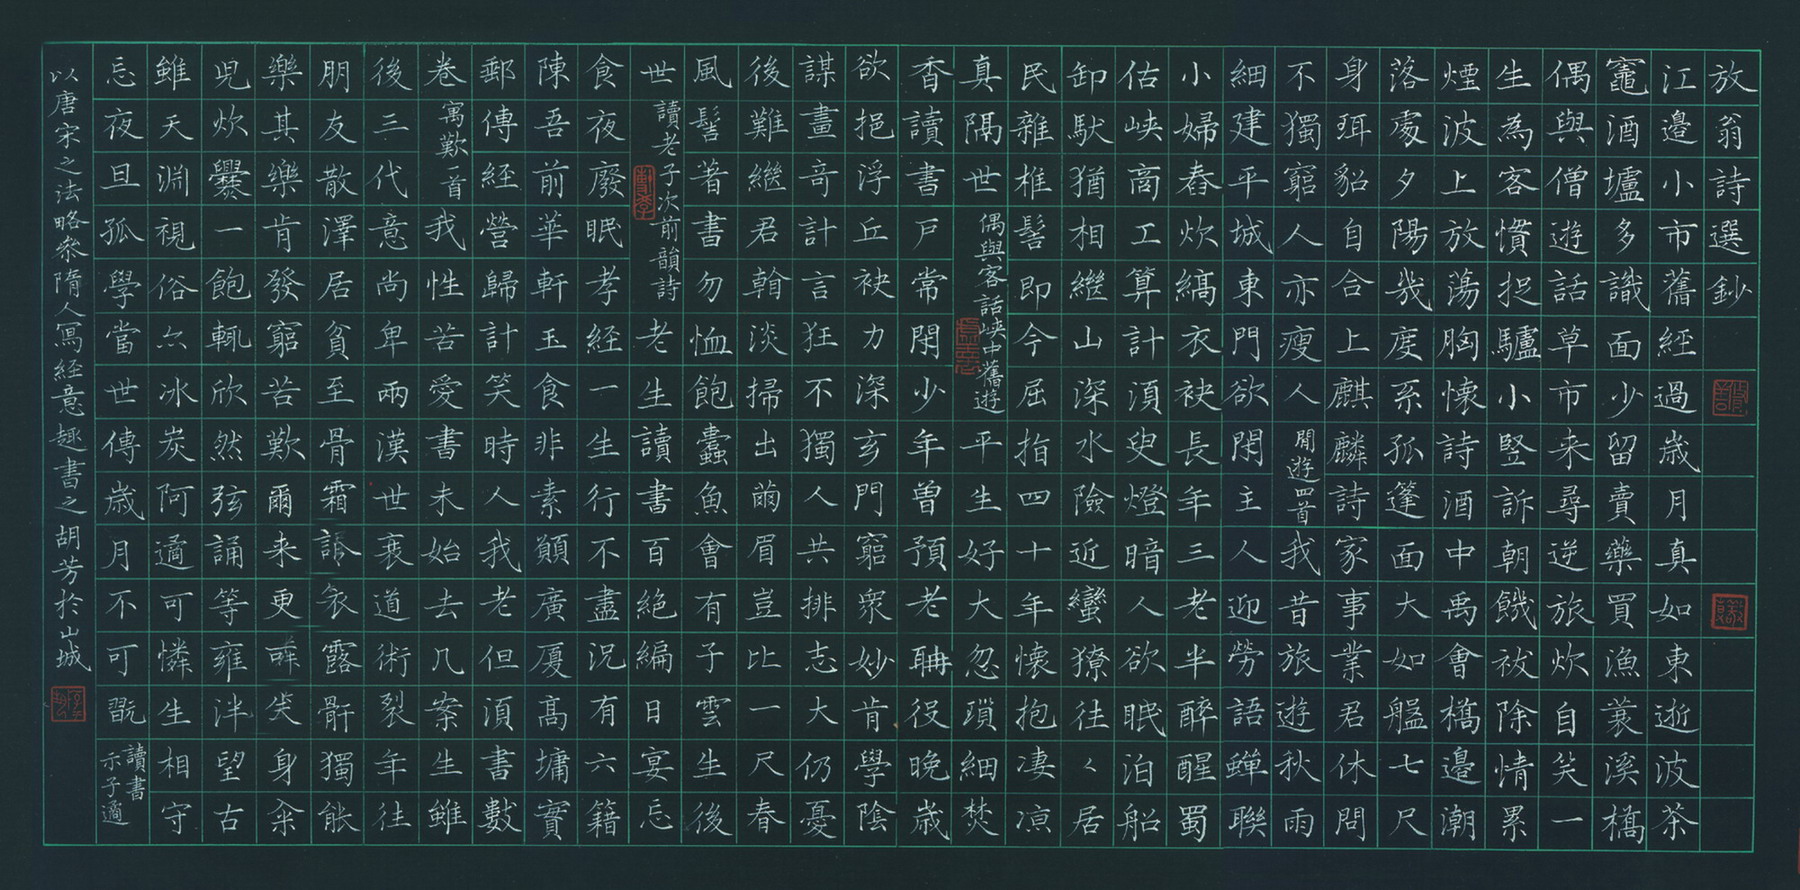 放翁詩選鈔
江邊小市舊經過歲月真如東逝波茶
竈酒壚多識面少留賣藥買漁蓑溪橋
偶與僧遊話草市来尋逆旅炊自笑一
生為客慣捉驢小豎訴朝饑祓除情累
煙波上放蕩胸懷詩酒中禹會橋邊潮
落處夕陽幾度系孤篷面大如艋七尺
身珥貂自合上麒麟詩家事業君休問
不獨窮人亦瘦人 閒遊四首 我昔旅遊秋雨
細建平城東門欲閑主人迎勞語蟬聯
小婦舂炊縞衣袂長年三老半醉醒蜀
估峽商工算計須臾燈暗人欲眠泊船
卸馱猶相繼山深水險近蠻獠往く居
民雜椎髻即今屈指四十年懷抱淒凉
真隔世 偶與客話峽中舊遊 平生好大忽瑣細焚
香讀書戶常閑少年曾預老聃役晚歲
欲挹浮丘袂力深亥門窮衆妙肯學陰
謀畫奇計言狂不獨人共排志大仍憂
後難繼君翰淡掃出繭眉豈比一尺春
風髻著書勿恤飽蠹魚會有子雲生後
世 讀老子次前韻詩 老生讀書百絕編日宴忘
食夜廢眠孝經一生行不盡況有六籍
陳吾前華軒玉食非素願廣廈高墉實
郵傳經營歸計笑時人我老但須書數
卷 寓歎首 我性苦愛書未始去几案生雖
後三代意尚卑兩漢世衰道術裂年往
朋友散澤居貧至骨霜露獨能
樂其樂肯發窮苦歎爾来更身
兕炊爨一飽輒欣然弦誦等雍泮望古
雖天淵視俗亦冰炭阿遹可憐生相守
忘夜旦孤學當世傳歲月不可翫 讀書示子遹
以唐宋之法略參隋人寫經意趣書之胡芳於山城